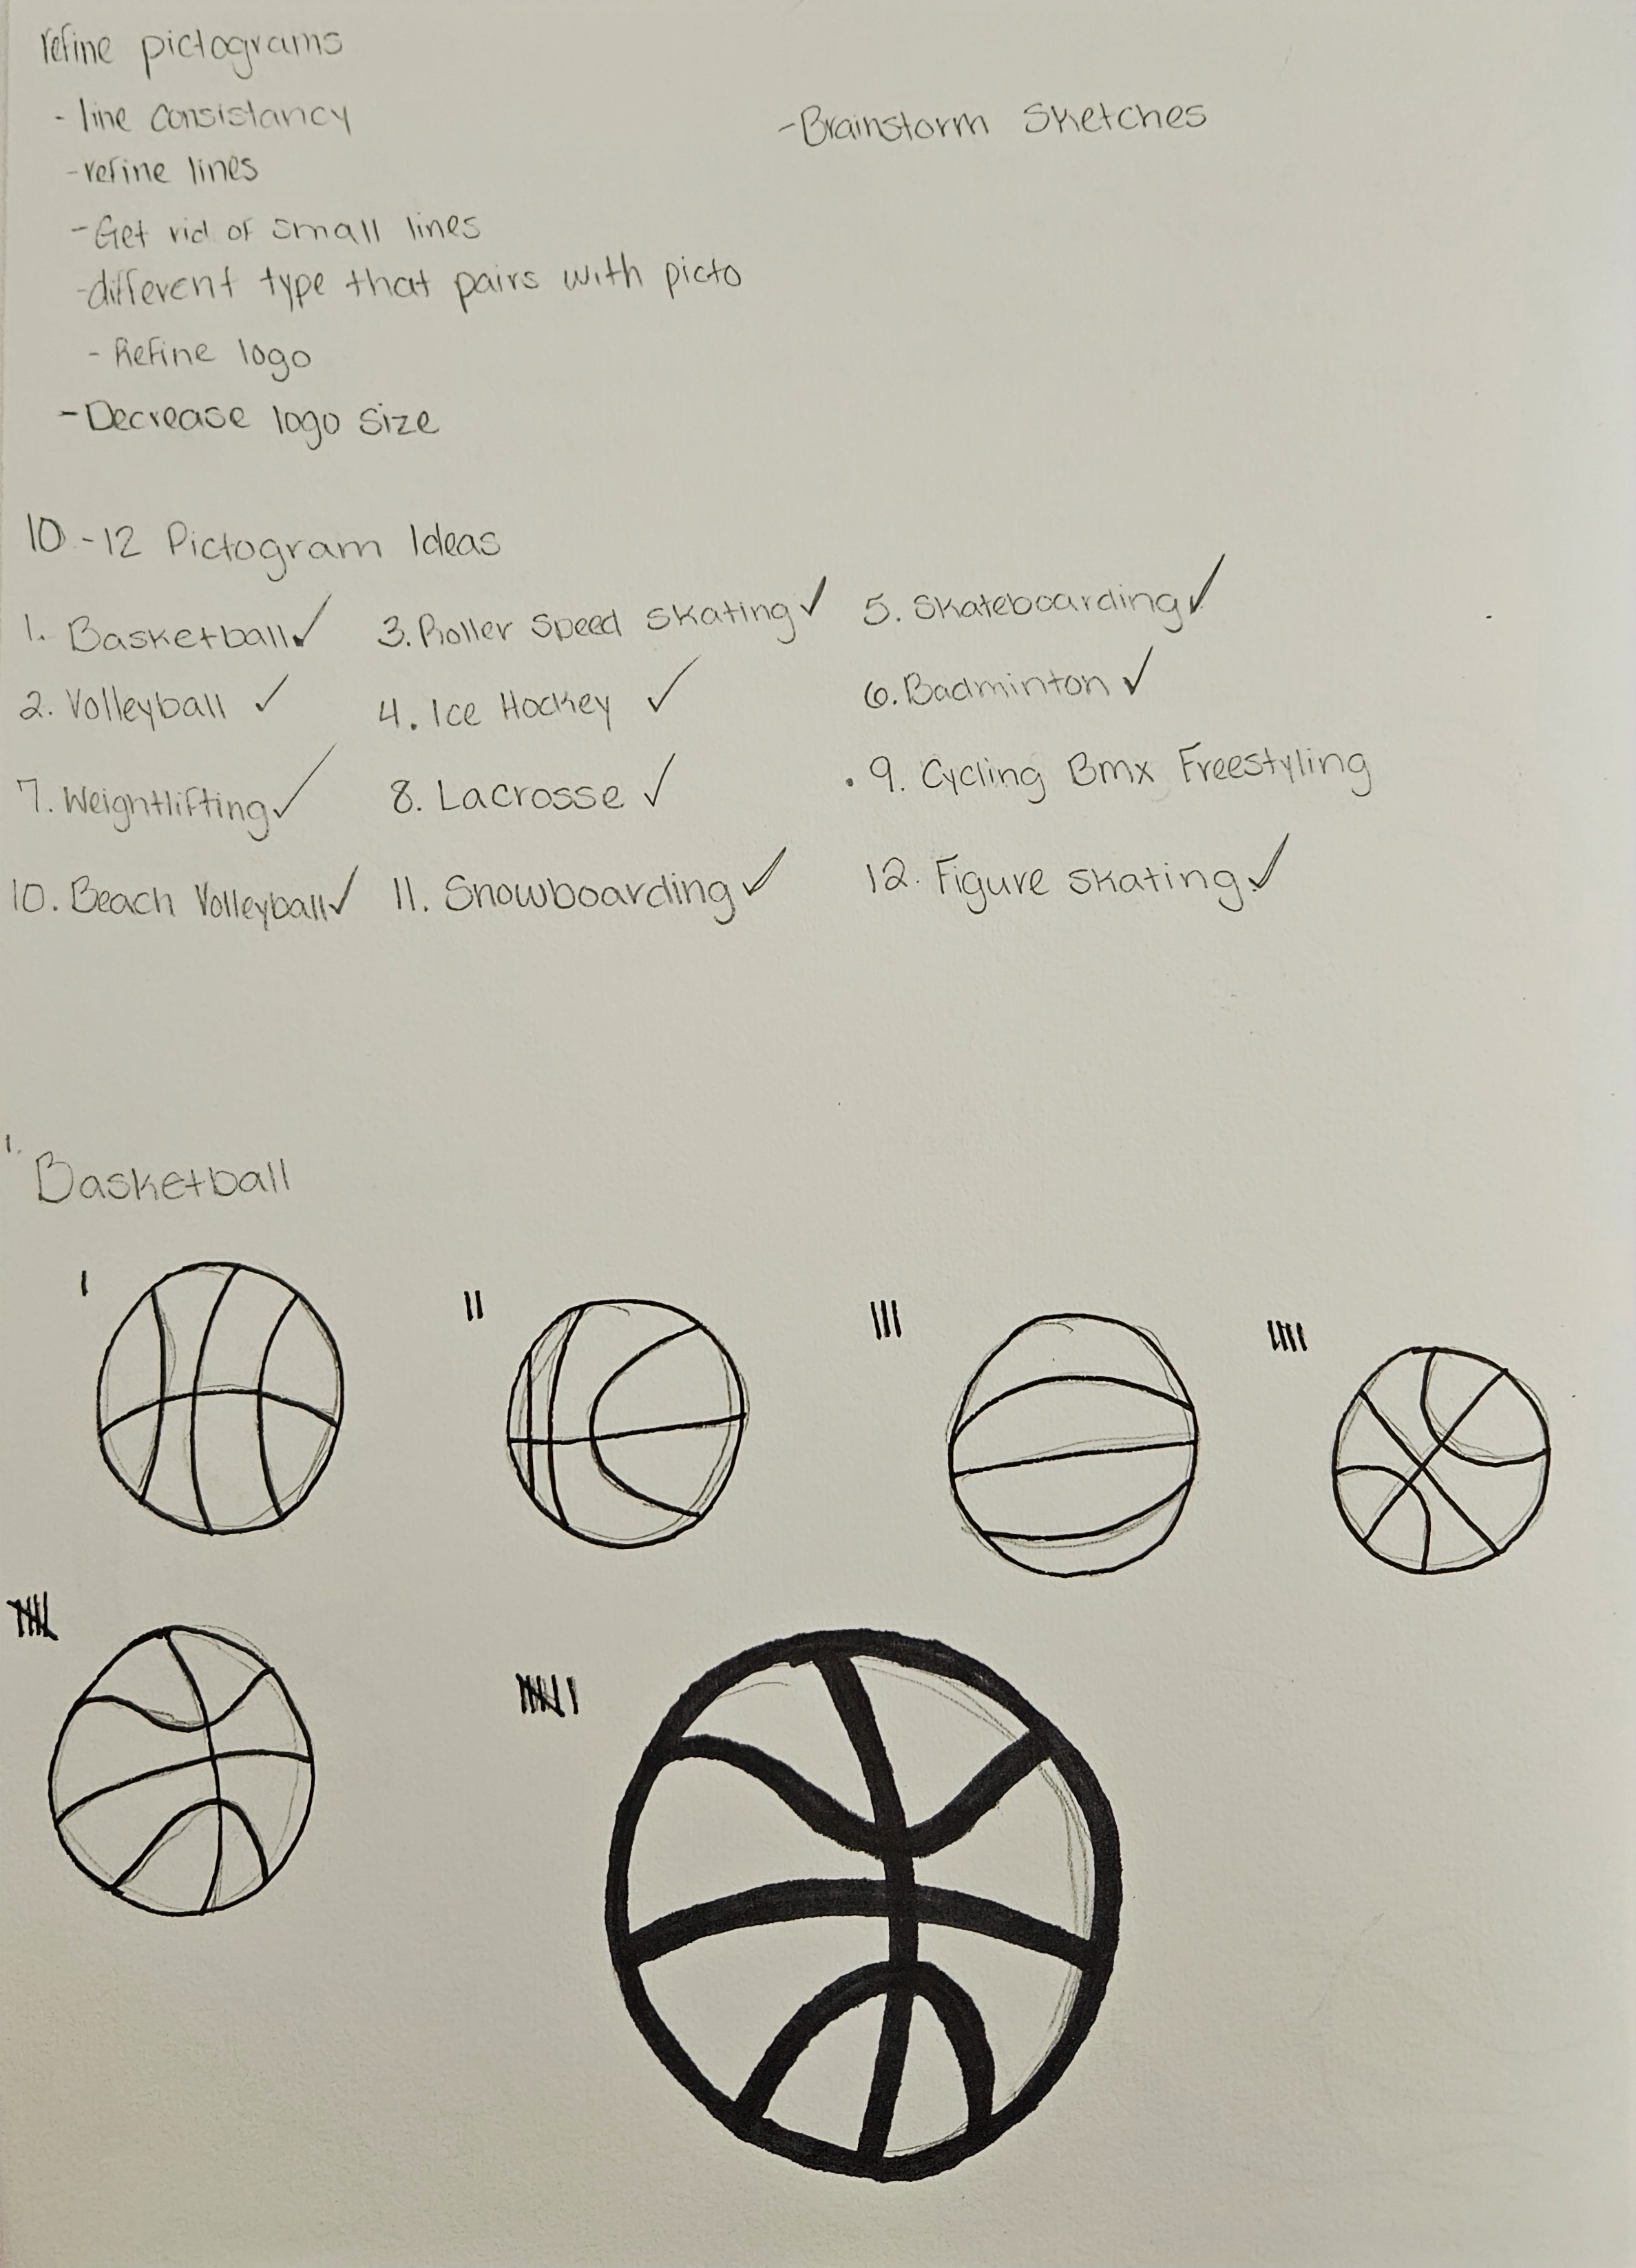 refine pictograms
- line consistancy
- Brainstorm Sketches
- refine lines
- Get rid of small lines
- different type that pairs with picto
- Refine logo
- Decrease logo size
10-12 Pictogram Ideas
1. Basketball ✓ 3. Roller Speed skating ✓ 5. Skateboarding ✓
2. Volleyball ✓ 4. Ice Hockey ✓ 6. Badminton ✓
7. Weightlifting ✓ 8. Lacrosse ✓ 9. Cycling Bmx Freestyling
10. Beach Volleyball ✓ 11. Snowboarding ✓ 12. Figure skating ✓
1. Basketball
I II III IIII